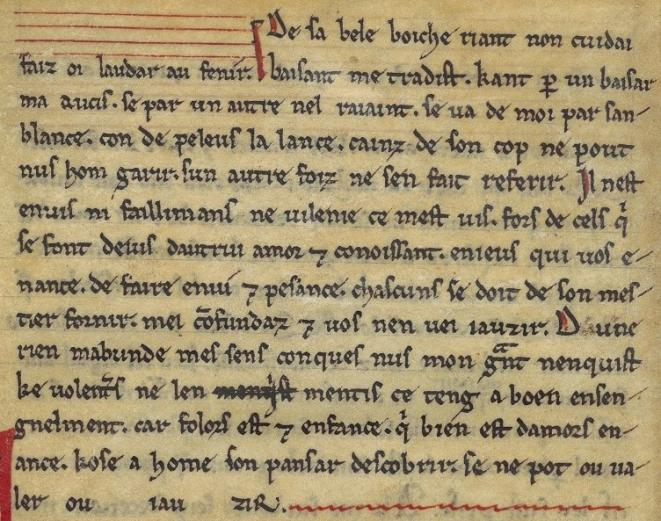 De sa bele boiche riant non cuidai
faiz oi laudar au fenir. baisant me tradist. kant ꝑ un baisar
ma aucis. se par un autre nel raiaint. se ua de moi par san-
blance. con de peleus la lance. cainz de son cop ne pout
nus hom garir. sun autre foiz ne sen fait referir. Il nest
enuis ni faillimans ne uilenie ce mest uis. fors de cels q̍
se font deuis dautrui amor ⁊ conoissant. enieus qui uos e-
nance. de faire enui ⁊ pesance. chascuns se doit de son mes-
tier fornir. mei cōfundaz ⁊ uos nen uei iauzir. D une
rien mabunde mes sens conques nus mon gn̄t nenquist
ke volent̄s ne len mentis ce teng a boen ensen-
gnelment. car folors est ⁊ enfance. q̍ bien est damors en-
ance. kose a home son pansar descobrir. se ne pot ou ua-
ler ou iau ziR.